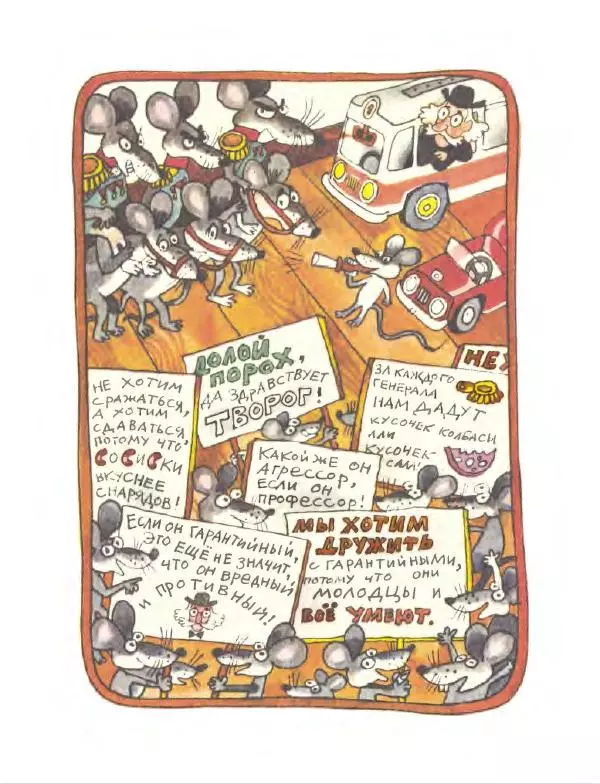 ДОЛОЙ
ПОРОХ,
ДА ЗДРАВСТВУЕТ
ТВОРОГ!
НЕ ХОТИМ
СРАЖАТЬСЯ,
А ХОТИМ
СДАВАТЬСЯ
ПОТОМУ ЧТО,
СОСИСКИ
ВКУСНЕЕ
СНАРЯДОВ!
ЗА КАЖДОГО
ГЕНЕРАЛА
НАМ ДАДУТ
КУСОЧЕК КОЛБАСЫ
ИЛИ
КУСОЧЕК
САЛА!
НЕ
КАКОЙ ЖЕ ОН
АГРЕССОР,
ЕСЛИ ОН
ПРОФЕССОР!
ЕСЛИ ОН ГАРАНТИЙНЫЙ,
ЭТО ЕЩЁ НЕ ЗНАЧИТ,
ЧТО ОН ВРЕДНЫЙ
И ПРОТИВНЫЙ!
МЫ ХОТИМ
ДРУЖИТЬ
С ГАРАНТИЙНЫМИ,
ПОТОМУ ЧТО ОНИ
МОЛОДЦЫ И
ВСЁ УМЕЮТ.